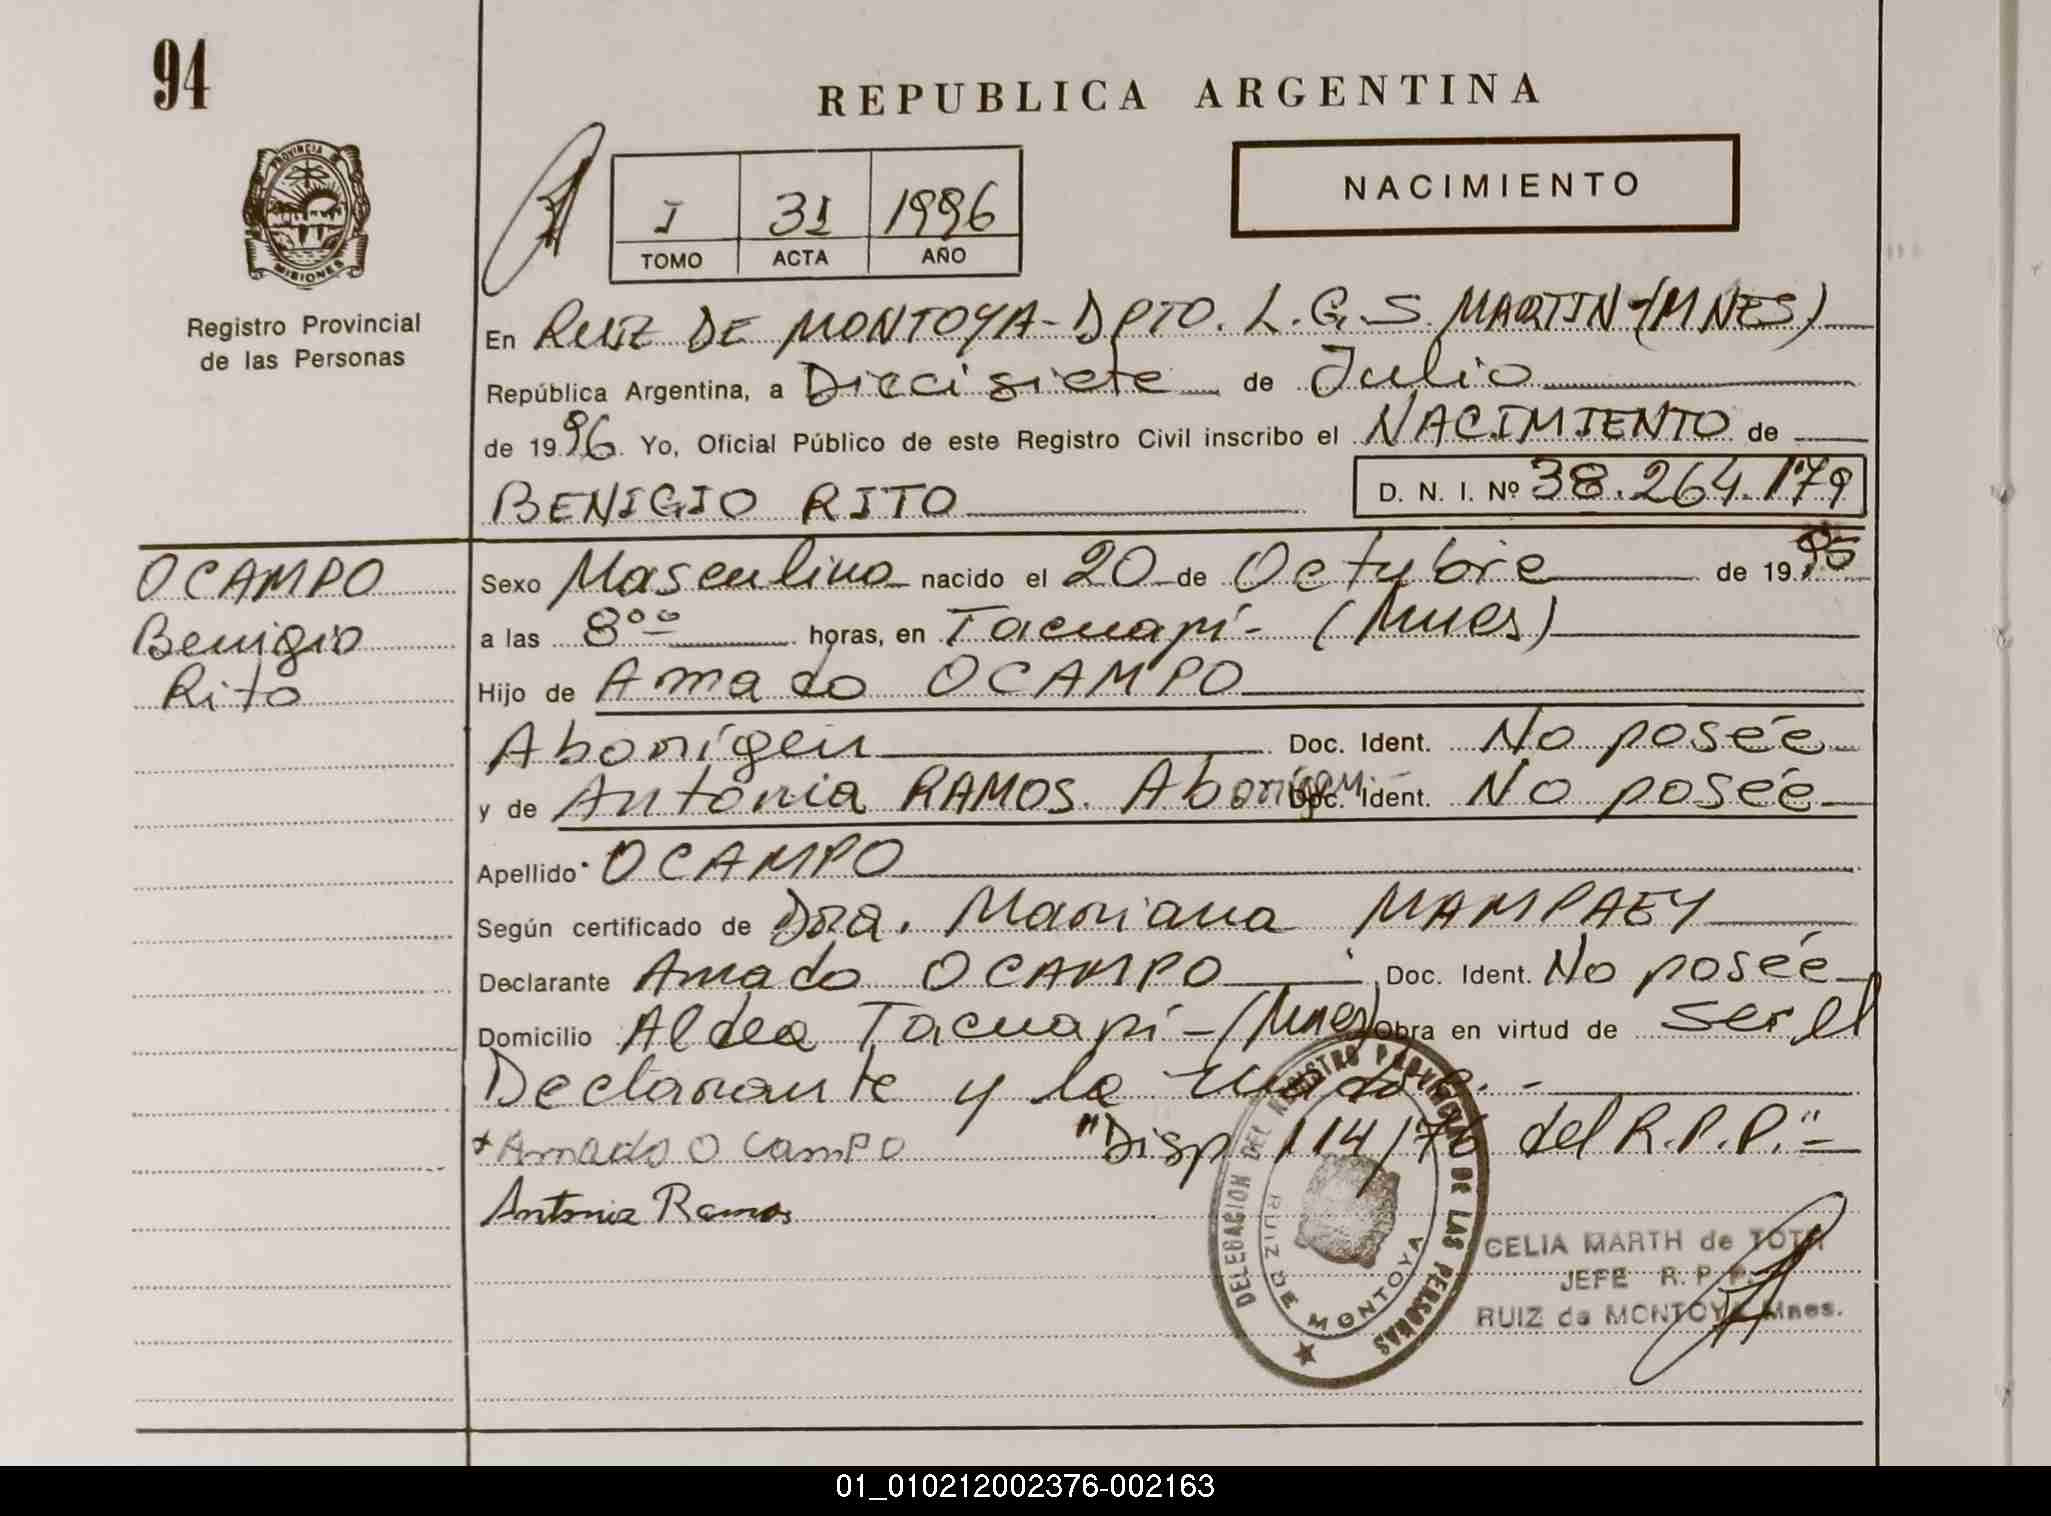 94
REPUBLICA ARGENTINA
PROVINCIA DE MISIONES
I 31 1996
TOMO ACTA AÑO
NACIMIENTO
Registro Provincial
de las Personas
En RUIZ DE MONTOYA-DPTO. L.G.S. MARTIN-(MNES)
República Argentina, a Diecisiete de Julio
de 1996. Yo, Oficial Público de este Registro Civil inscribo el NACIMIENTO de
BENIGIO RITO D. N. I. Nº 38.264.179
OCAMPO
Benigio
Rito
Sexo Masculino nacido el 20 de Octubre de 1995
a las 8°° horas, en Tacuapí- (Mnes)
Hijo de Amado OCAMPO
Aborígen Doc. Ident. No posée
y de Antonia RAMOS. Aborígen. Doc. Ident. No posée
Apellido OCAMPO
Según certificado de Dra. Mariana MAMPAEY
Declarante Amado OCAMPO Doc. Ident. No posée
Domicilio Aldea Tacuapí-(Mnes) Obra en virtud de ser el
Declarante y la madre.-
+Amado Ocampo "Disp 114/76 del R.P.P."=
Antonia Ramos
DELEGACION DEL REGISTRO PROVINCIAL DE LAS PERSONAS
RUIZ DE MONTOYA
CELIA MARTH de TOTH
JEFE R. P. P.
RUIZ de MONTOYA Mnes.
01_010212002376-002163